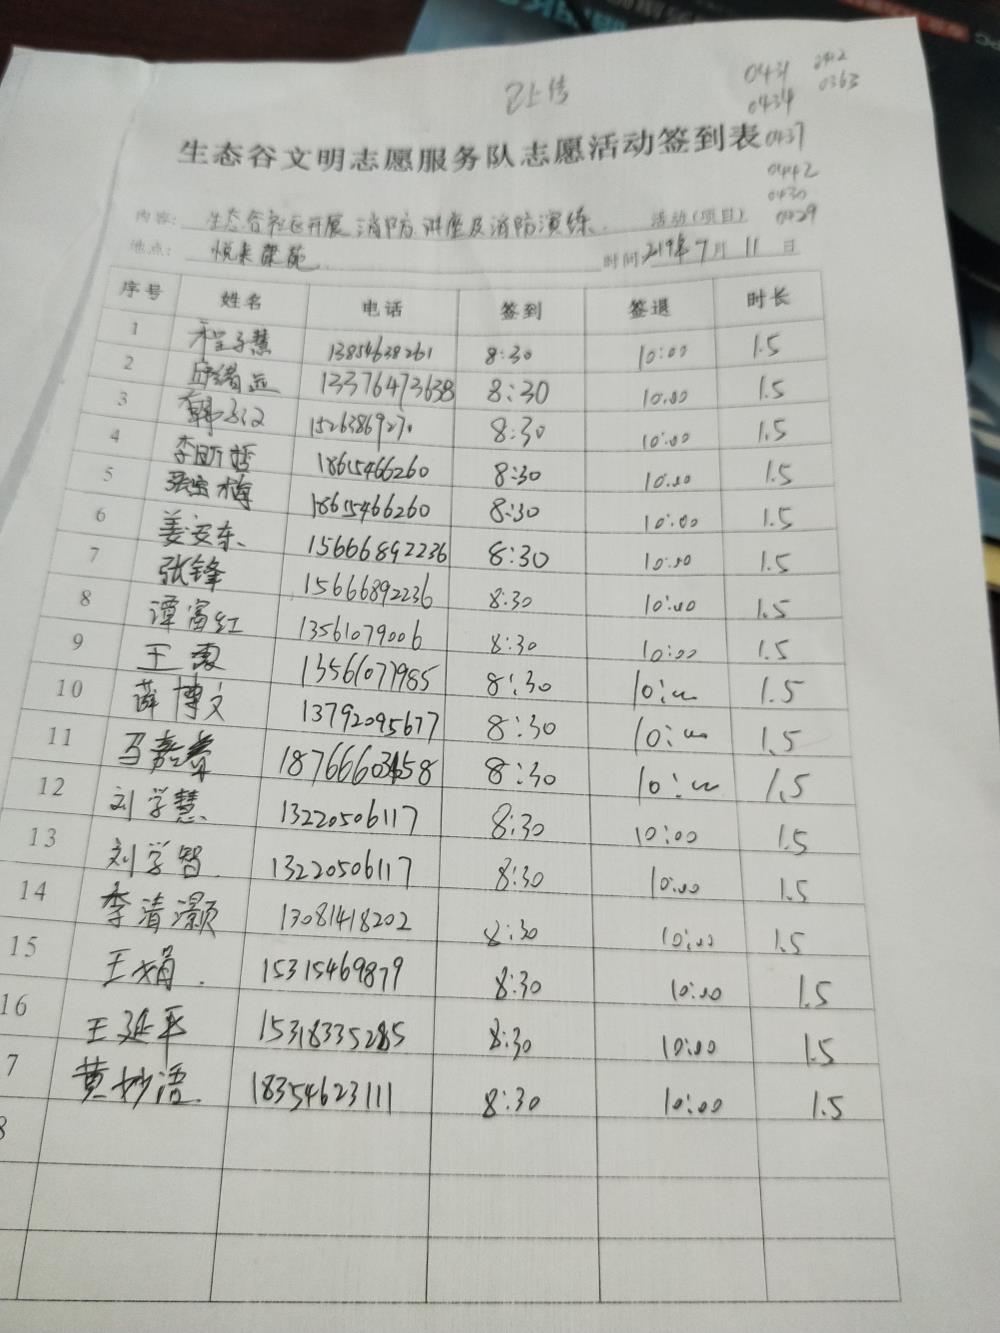 已上传
0431
0434
0363
生态谷文明志愿服务队志愿活动签到表
0437
0442
0430
0429
内容: 生态谷社区开展消防讲座及消防演练. 活动(项目)
地点: 悦来 时间: 219年 7月 11日
序号 姓名 电话 签到 签退 时长
1 程子慧 13854638261 8:30 10:00 1.5
2 13376473638 8:30 10:00 1.5
3 韩 1526386927 8:30 10:00 1.5
4 李昕哲 18615466260 8:30 10:00 1.5
5 张宝梅 18615466260 8:30 10:00 1.5
6 姜安东 15666892236 8:30 10:00 1.5
7 张锋 15666892236 8:30 10:00 1.5
8 谭富红 13561079006 8:30 10:00 1.5
9 王 13561077985 8:30 10:00 1.5
10 薛博文 13792095677 8:30 10:00 1.5
11 马嘉 8:30 10:00 1.5
12 刘学慧 13220506117 8:30 10:00 1.5
13 刘学智 13220506117 8:30 10:00 1.5
14 李清灏 13081418202 8:30 10:00 1.5
15 王娟. 15315469879 8:30 10:00 1.5
16 王延平 15318335285 8:30 10:00 1.5
7 黄妙语 18354623111 8:30 10:00 1.5
8